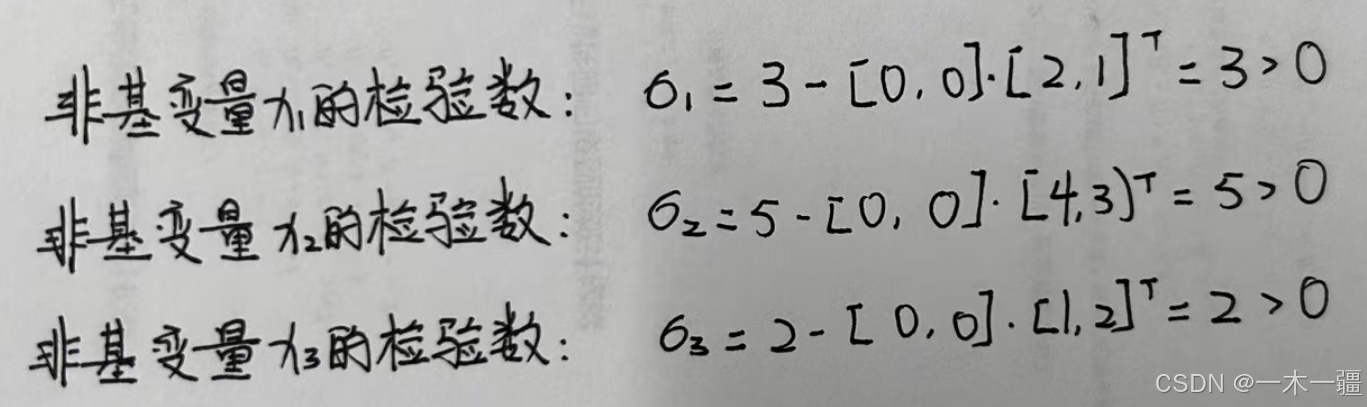 非基变量x₁的检验数： σ₁ = 3 - [0, 0]·[2, 1]ᵀ = 3 > 0
非基变量x₂的检验数： σ₂ = 5 - [0, 0]·[4, 3)ᵀ = 5 > 0
非基变量x₃的检验数： σ₃ = 2 - [0, 0]·[1, 2]ᵀ = 2 > 0
CSDN @一木一疆